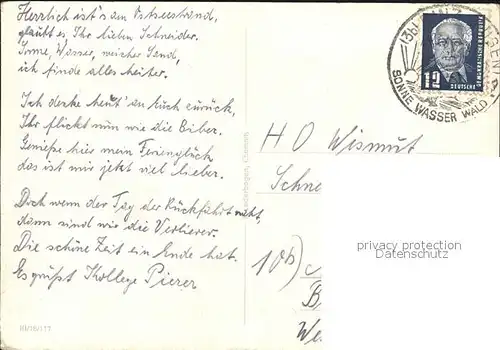 Herrlich ist's am Ostseestrand,
glaubt es, Ihr lieben Schneider.
Sonne, Wasser, weicher Sand,
ich finde alles heiter.
Ich denke heut' an Euch zurück,
Ihr flickt nun wie die Biber.
Genieße hier mein Ferienglück
das ist mir jetzt viel lieber.
Doch wenn der Tag der Rückfahrt naht,
dann sind wir die Verlierer.
Die schöne Zeit ein Ende hat.
Es grüßt Kollege Pierer
III/18/117
12
DEUTSCHE
DEMOKRATISCHE REPUBLIK
SONNE WASSER WALD
H O Wismut
Schne
(10b)
B
We
privacy protection
Datenschutz